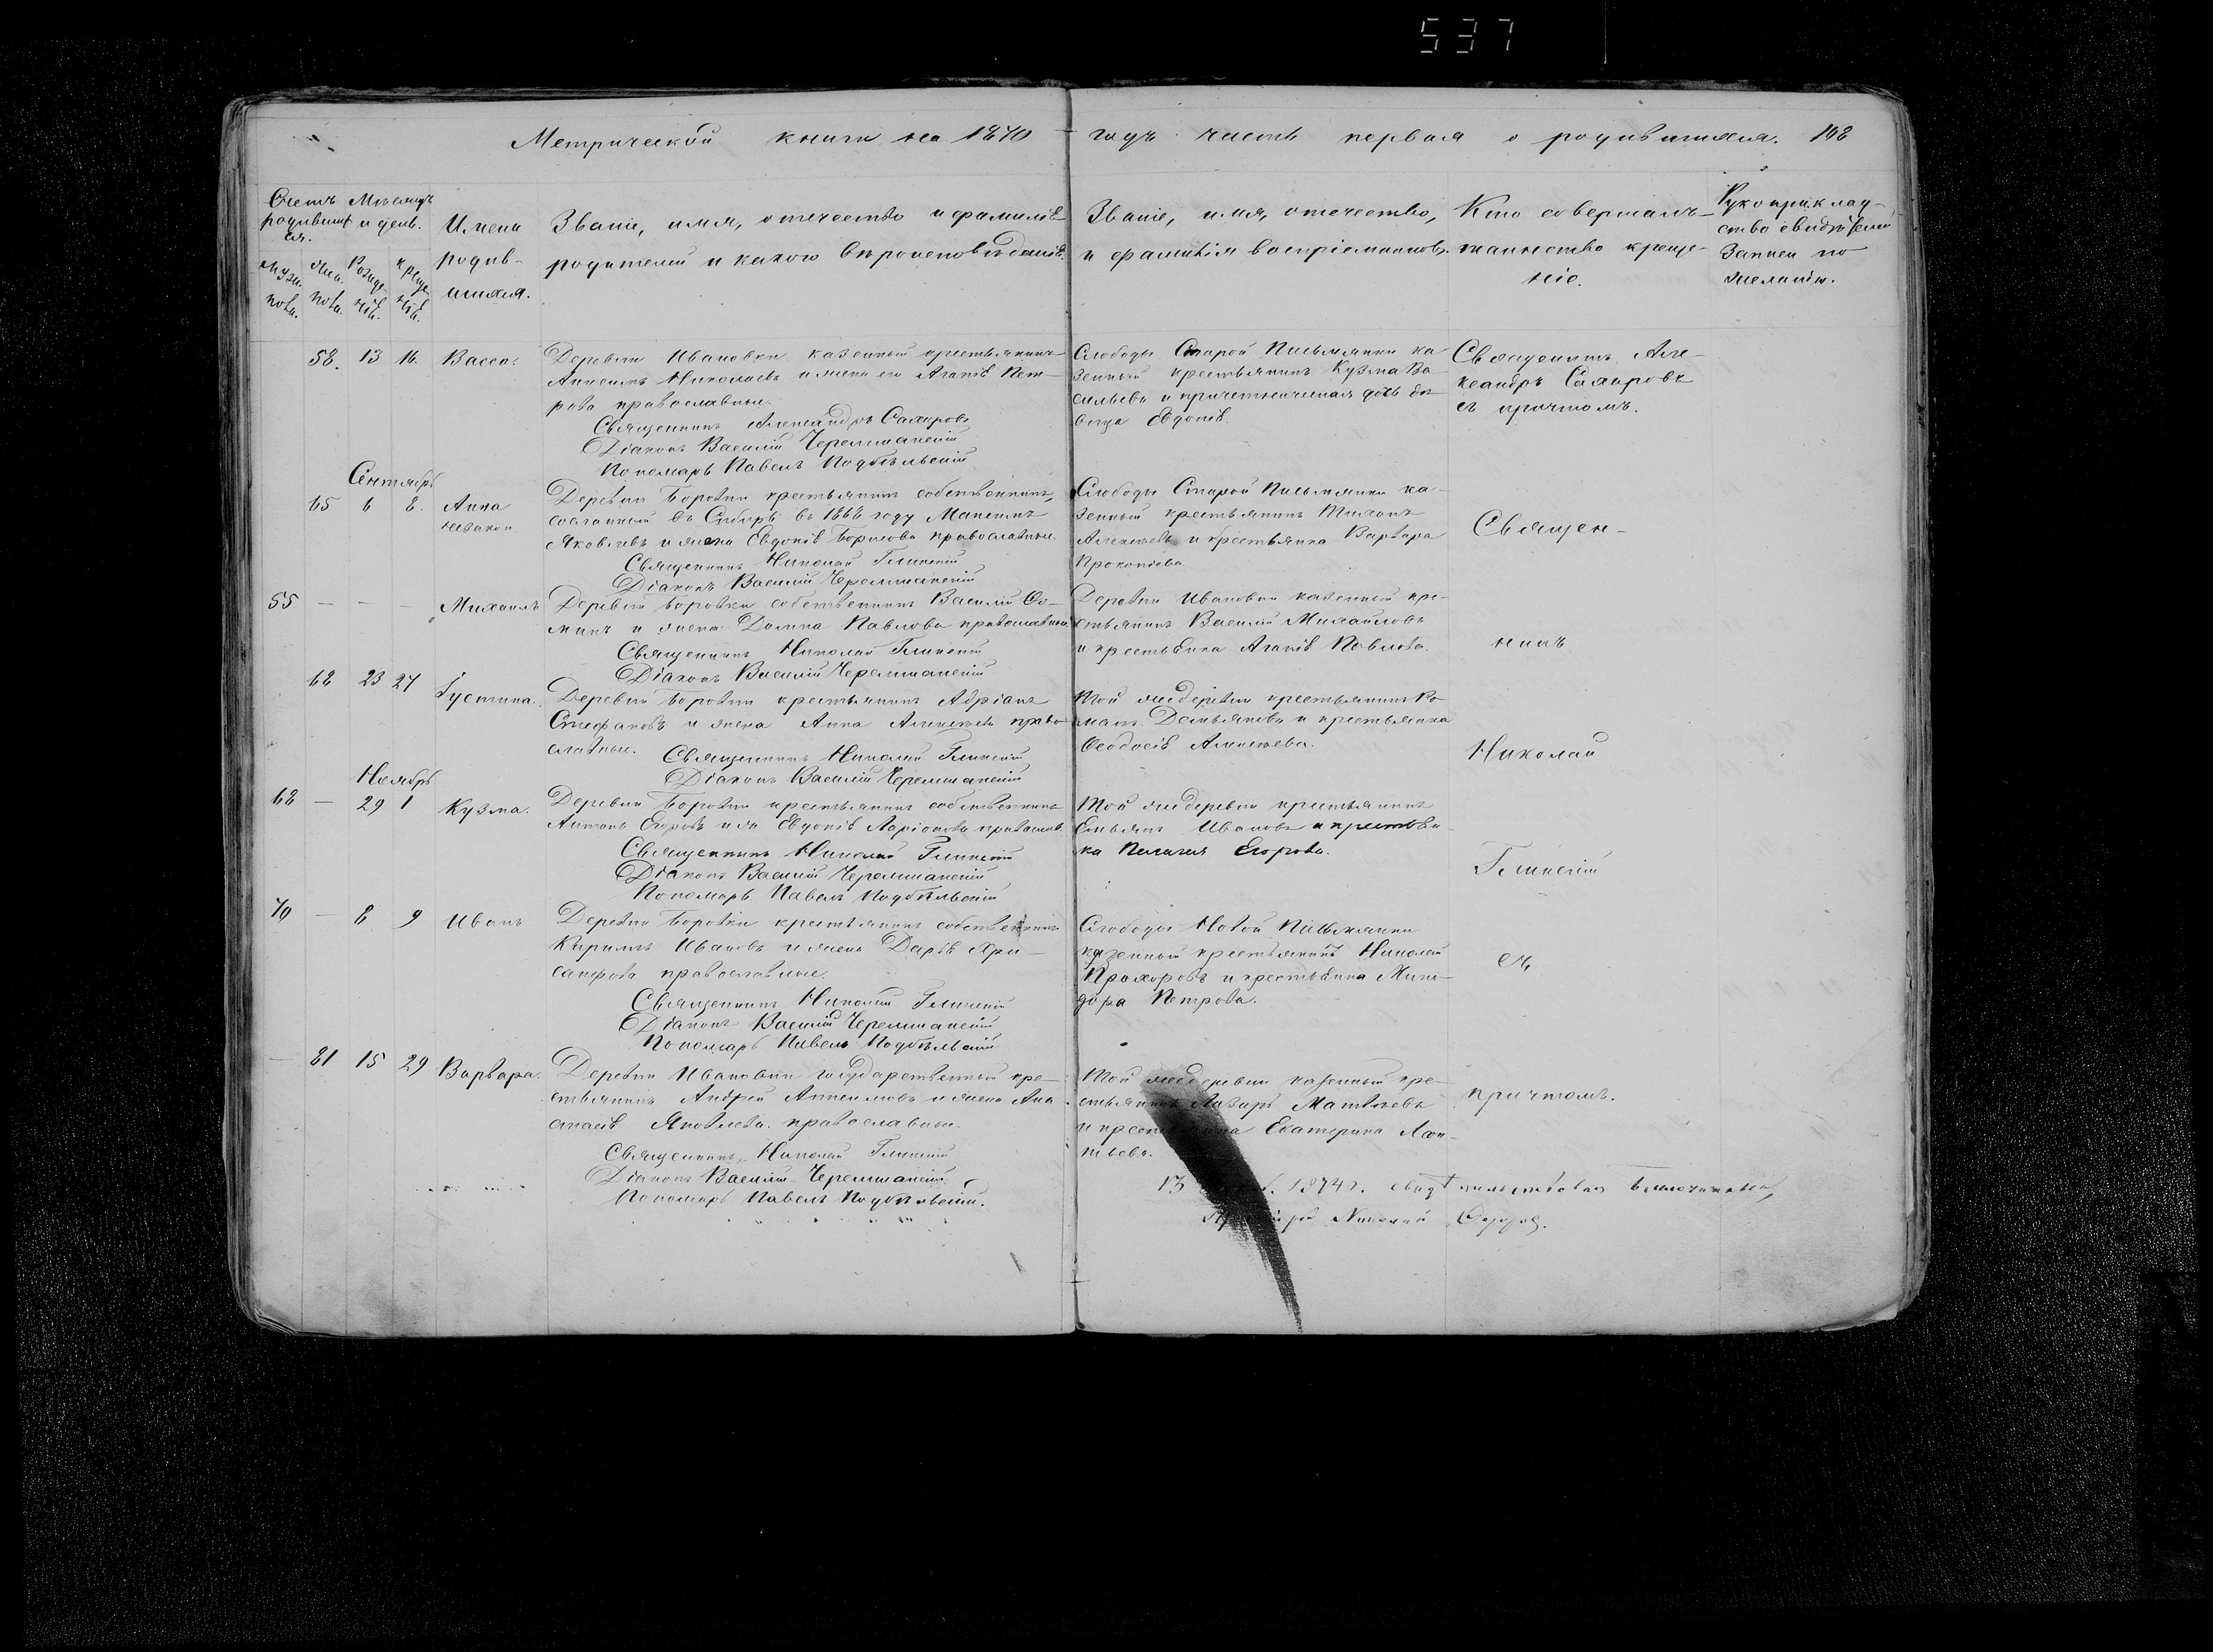 537
Метрической книги на 1870 годъ часть первая о родившихся. 108
Счетъ родивших ся.
Мѣсяцъ и день.
Имена родив- шихся.
Званіе, имя, отечество и фамилія
родителей и какого вѣроисповѣданія.
Званіе, имя, отечество,
и фамилія воспріемниковъ.
Кто совершалъ
таинство креще-
нія.
Рукоприклад-
ство свидѣтелей
записи по
желанію.
58. 13 16. Васса.
Деревни Ивановки казенный крестьянинъ
Николаевъ и жена его Агапія Пет-
рова православные.
Священникъ Александръ Сахаровъ
Діаконъ Василій Черемшанскій
Пономарь Павелъ Подбѣльскій
Слободы Старой Письмянки ка
зенный крестьянинъ Кузма Ва
сильевъ и причетническая дочь дѣ
вица Евдокія.
Священникъ Але-
ксандръ Сахаровъ
съ причтомъ.
Сентябрь
65 6 8. Анна
незакон.
Деревни Боровки крестьянинъ собственникъ,
сосланный въ Сибирь въ 1868 году Максимъ
Яковлевъ и жена Евдокія Борисова православные.
Священникъ Николай Глинскій
Діаконъ Василій Черемшанскій
Слободы Старой Письмянки ка-
зенный крестьянинъ Тихонъ
Алексѣевъ и крестьянка Варвара
Прокопіева.
Священ-
55 — — Михаилъ
Деревни Боровки собственникъ Василій Ѳо-
минъ и жена Домна Павлова православные
Священникъ Николай Глинскій
Діаконъ Василій Черемшанскій
Деревни Ивановки казенный кре-
стьянинъ Василій Михайловъ
и крестьянка Агапія Павлова.
никъ
68 23 27 Густина.
Деревни Боровки крестьянинъ Адріанъ
Стефановъ и жена Анна Алексѣева право
славные.
Священникъ Николай Глинскій
Діаконъ Василій Черемшанскій
Той же деревни крестьянинъ Ро
манъ Демьяновъ и крестьянка
Ѳеодосія Алексѣева.
Николай
Ноябрь
68 — 29 1 Кузма.
Деревни Боровки крестьянинъ собственникъ
Антонъ Егоровъ и жа Евдокія Ларіонова православ.
Священникъ Николай Глинскій
Діаконъ Василій Черемшанскій
Пономарь Павелъ Подбѣльскій
Той же деревни крестьянинъ
Емельянъ Ивановъ и крестьян
ка Пелагея Егорова.
Глинскій
70 — 8 9 Иванъ
Деревни Боровки крестьянинъ собственникъ
Кирилъ Ивановъ и жена Дарія Хри-
санфова православные.
Священникъ Николай Глинскій
Діаконъ Василій Черемшанскій
Пономарь Павелъ Подбѣльскій
Слободы Новой Письмянки
казенный крестьянинъ Николай
Прохоровъ и крестьянка Мино-
дора Петрова.
съ
— 81 15 29 Варвара.
Деревни Ивановки государственный кре-
стьянинъ Андрей Анисимовъ и жена Ана
стасія Яковлева православные.
Священникъ Николай Глинскій
Діаконъ Василій Черемшанскій
Пономарь Павелъ Подбѣльскій.
Той же деревни казенный кре-
стьянинъ Лазарь Матвѣевъ
и крестьянка Екатерина Леон-
тьева.
причтомъ.
13 1874 г. свидѣтельствовалъ Благочинный,
Николай